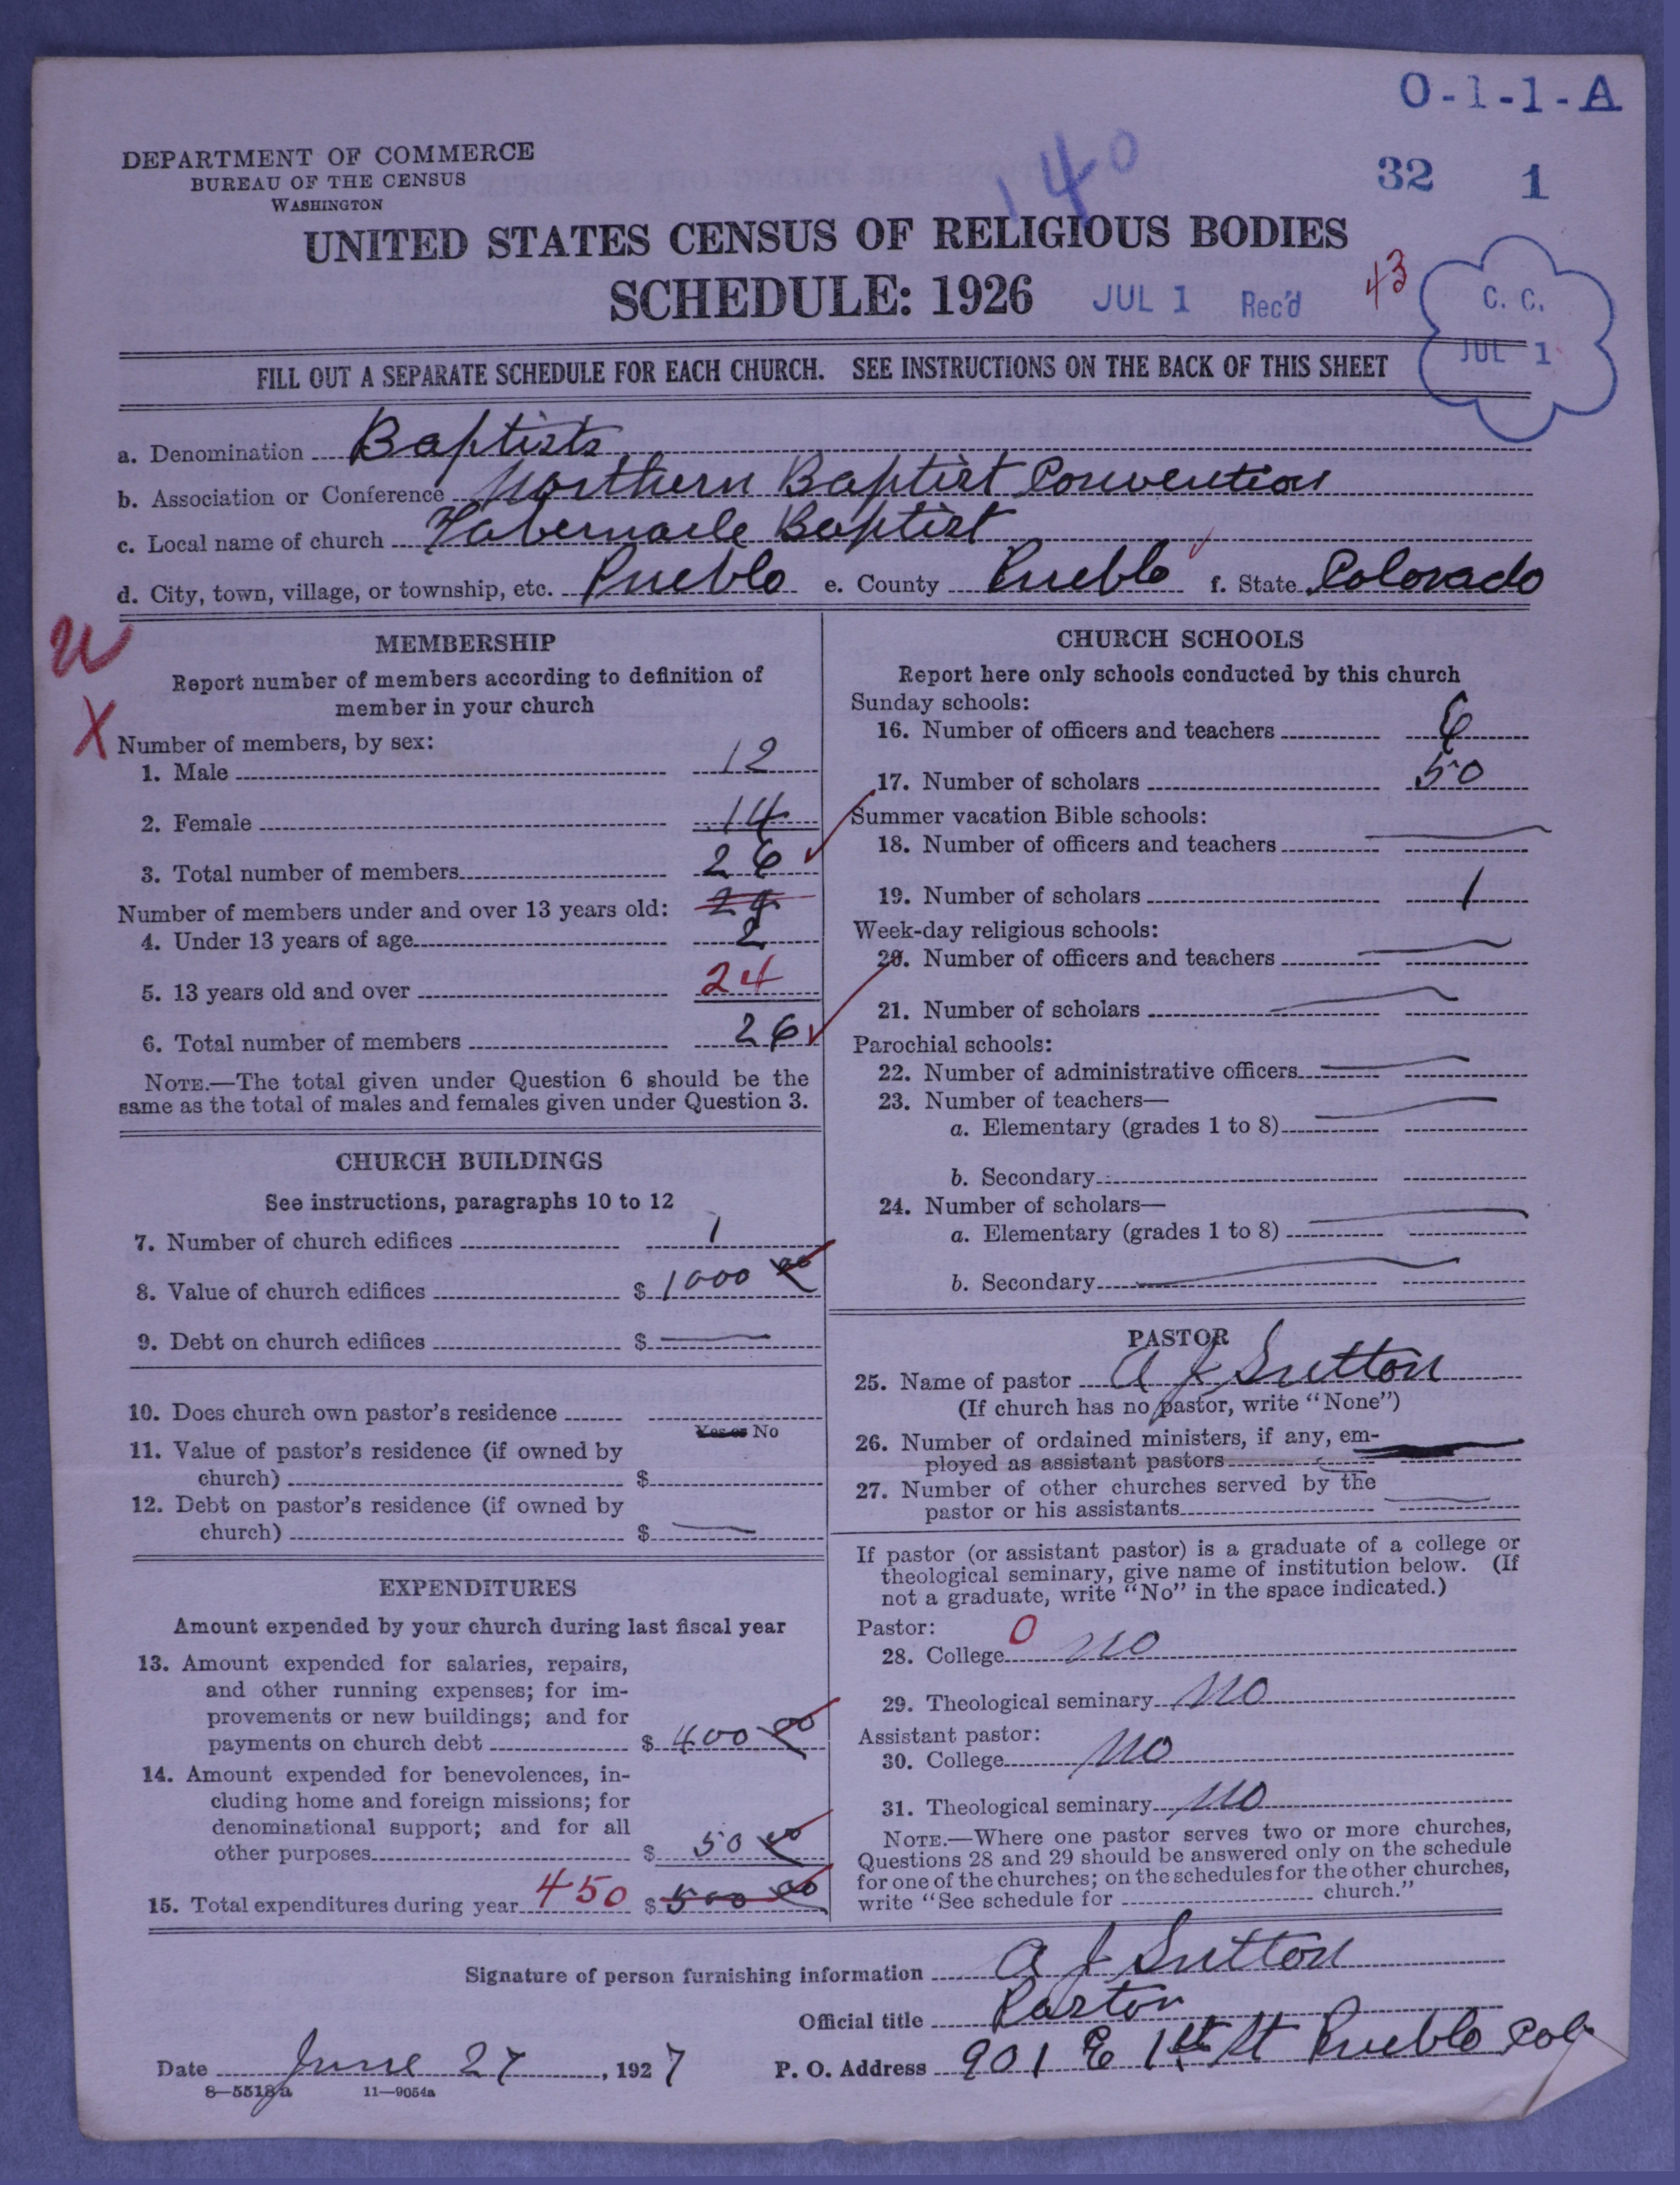 O-1-1-A
DEPARTMENT OF COMMERCE
BUREAU OF THE CENSUS
WASHINGTON
140
32 1
UNITED STATES CENSUS OF RELIGIOUS BODIES
SCHEDULE: 1926 JUL 1 Rec'd 43
C. C.
JUL 1
FILL OUT A SEPARATE SCHEDULE FOR EACH CHURCH. SEE INSTRUCTIONS ON THE BACK OF THIS SHEET
a. Denomination Baptists
b. Association or Conference Northern Baptist Convention
c. Local name of church Tabernacle Baptist
d. City, town, village, or township, etc. Pueblo e. County Pueblo f. State Colorado
X
MEMBERSHIP
Report number of members according to definition of
member in your church
Number of members, by sex:
1. Male 12
2. Female 14
3. Total number of members 26
Number of members under and over 13 years old: 24
4. Under 13 years of age 2
5. 13 years old and over 24
6. Total number of members 26
NOTE.—The total given under Question 6 should be the
same as the total of males and females given under Question 3.
CHURCH BUILDINGS
See instructions, paragraphs 10 to 12
7. Number of church edifices 1
8. Value of church edifices $ 1000 00
9. Debt on church edifices $ —
10. Does church own pastor's residence
Yes or No
11. Value of pastor's residence (if owned by
church) $
12. Debt on pastor's residence (if owned by
church) $ —
EXPENDITURES
Amount expended by your church during last fiscal year
13. Amount expended for salaries, repairs,
and other running expenses; for im-
provements or new buildings; and for
payments on church debt $ 400 00
14. Amount expended for benevolences, in-
cluding home and foreign missions; for
denominational support; and for all
other purposes $ 50 00
15. Total expenditures during year 450 $ 500 00
CHURCH SCHOOLS
Report here only schools conducted by this church
Sunday schools:
16. Number of officers and teachers 6
17. Number of scholars 50
Summer vacation Bible schools:
18. Number of officers and teachers —
19. Number of scholars 1
Week-day religious schools:
20. Number of officers and teachers —
21. Number of scholars —
Parochial schools:
22. Number of administrative officers —
23. Number of teachers—
a. Elementary (grades 1 to 8) —
b. Secondary
24. Number of scholars—
a. Elementary (grades 1 to 8) —
b. Secondary —
PASTOR
25. Name of pastor A J Sutton
(If church has no pastor, write "None")
26. Number of ordained ministers, if any, em-
ployed as assistant pastors —
27. Number of other churches served by the
pastor or his assistants —
If pastor (or assistant pastor) is a graduate of a college or
theological seminary, give name of institution below. (If
not a graduate, write "No" in the space indicated.)
Pastor: 0
28. College no
29. Theological seminary no
Assistant pastor:
30. College no
31. Theological seminary no
NOTE.—Where one pastor serves two or more churches,
Questions 28 and 29 should be answered only on the schedule
for one of the churches; on the schedules for the other churches,
write "See schedule for church."
Signature of person furnishing information A J Sutton
Official title Pastor
Date June 27, 1927 P. O. Address 901 E 1st St Pueblo Colo
8—5518a 11—9054a